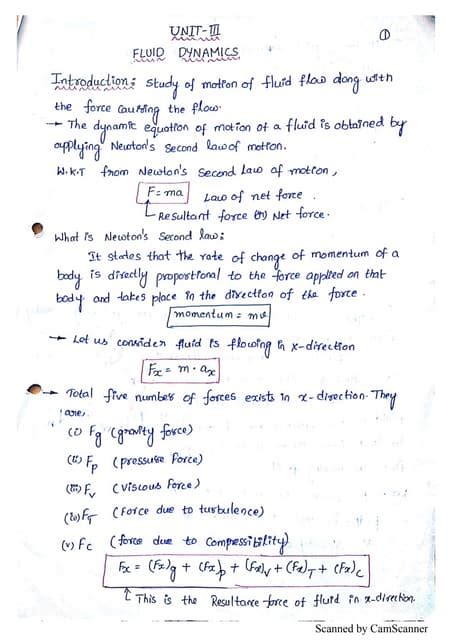 UNIT-III
①
FLUID DYNAMICS
Introduction: Study of motion of fluid flow along with
the force causing the flow.
→ The dynamic equation of motion of a fluid is obtained by
applying Newton's second law of motion.
W.K.T from Newton's second Law of motion,
F=ma Law of net force.
Resultant force (or) Net force.
What is Newton's Second law:
It states that the rate of change of momentum of a
body is directly proportional to the force applied on that
body and takes place in the direction of the force.
momentum = mv
→ Let us consider fluid is flowing in x-direction
Fx = m·ax
→ Total five number of forces exists in x-direction. They
are,
(i) Fg (gravity force)
(ii) Fp (pressure Force)
(iii) Fv (viscous Force)
(iv) FT (Force due to turbulence)
(v) Fc (force due to compressibility)
Fx = (Fx)g + (Fx)p + (Fx)v + (Fx)T + (Fx)c
↑ This is the Resultance force of fluid in x-direction.
Scanned by CamScanner